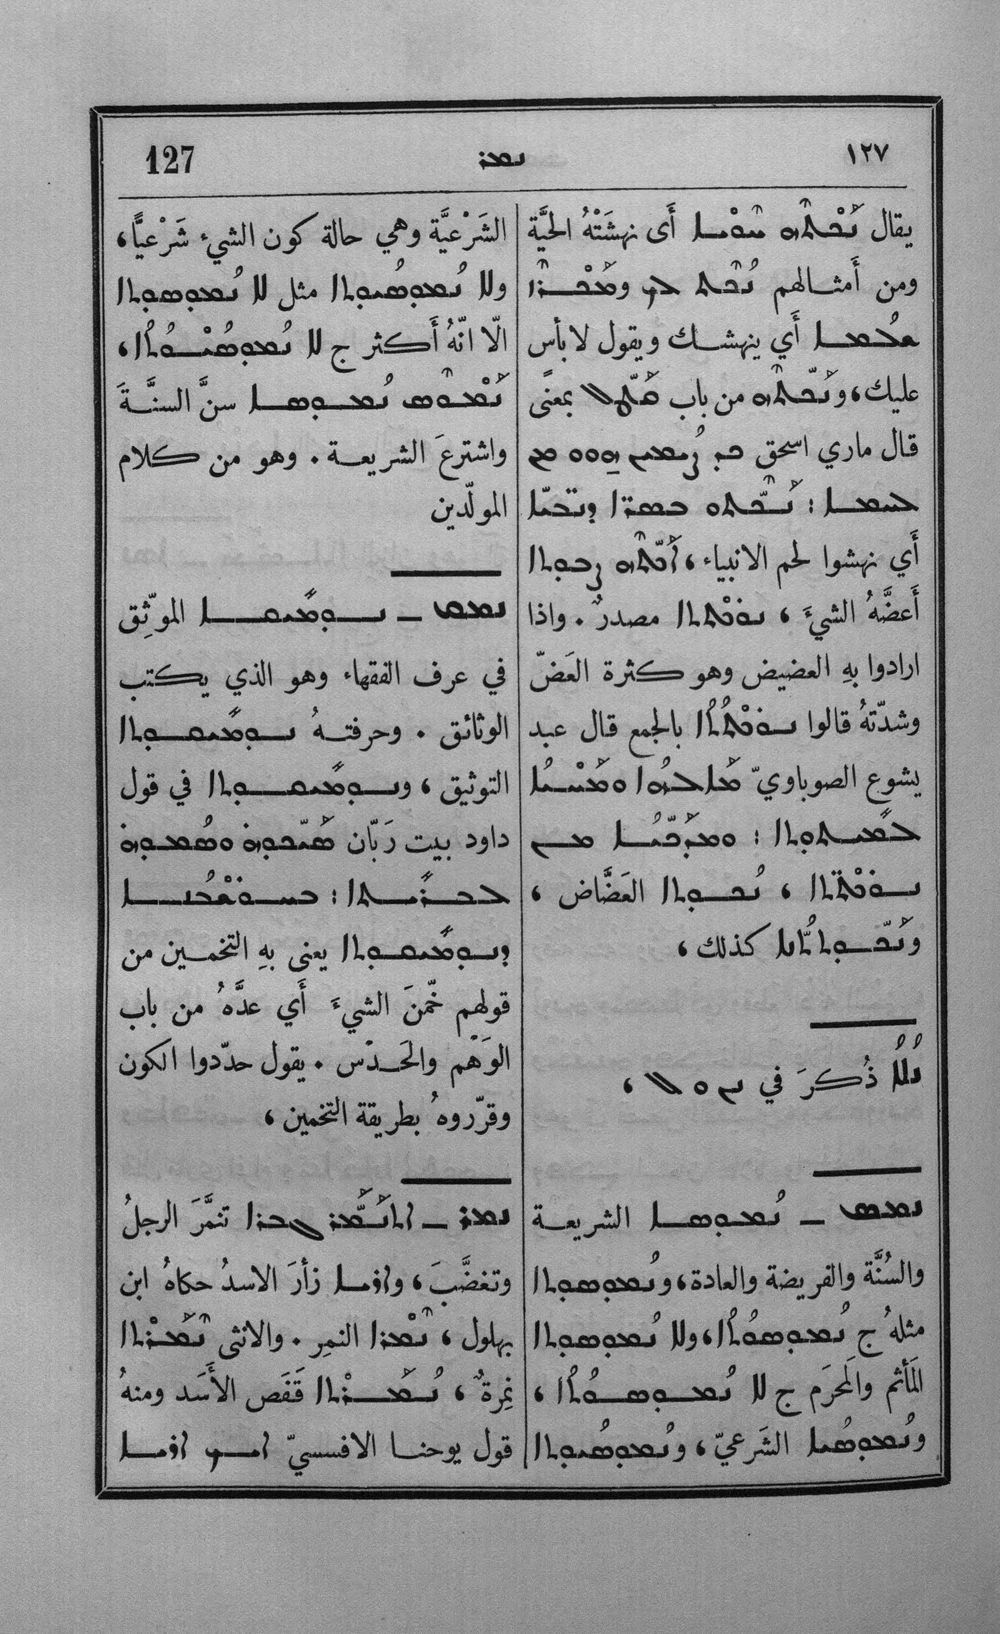 127 ܢܡܪ ١٢٧
يقال ܢܟܬܗ ܚܘܝܐ أَى نهشَتْهُ الحيَّة
ومن أَمثالهم ܢܟܬ
ܫܠܡܐ أَي ينهشك ويقول لا بأس
عليك، وܢܟܬܗ من باب ܩܛܠ بمعنًى
قال ماري اسحق ܟܕ ܨܝܡܝܢ ܗܘܘ ܡܢ
ܠܚܡܐ : ܢܟܬܘ ܒܣܪܐ ܕܢܒܝܐ
أَي نهشوا لحم الانبياء ، ܨܒܘܬܐ
أَعضَّهُ الشيءَ ، ܢܘܟܬܐ مصدرٌ . واذا
ارادوا بهِ العضيض وهو كثرة العَضّ
وشدّتهُ قالوا ܢܘܟܬܐ بالجمع قال عبد
يشوع الصوباويّ
ܡܢ
ܢܘܟܬܐ ، ܢܟܘܬܐ العَضَّاض ،
وܢܟܘܬܢܐ كذلك ،
ܢܠܐ ذُكرَ في ܢ ܘ ܠ ،
ܢܡܣ ـ ܢܡܘܣܐ الشريعة
والسُنَّة والفريضة والعادة، وܢܡܘܣܘܬܐ
مثلهُ ج ܢܡܘܣܘܬܐ، وܠܐ ܢܡܘܣܘܬܐ
المَأْثم والمَحرَم ج ܠܐ ܢܡܘܣܘܬܐ ،
وܢܡܘܣܝܐ الشَرعيّ ، وܢܡܘܣܝܘܬܐ
الشَرْعيَّة وهي حالة كون الشيء شَرْعيًّا،
وܠܐ ܢܡܘܣܝܘܬܐ مثل ܠܐ ܢܡܘܣܘܬܐ
الّا انّهُ أَكثر ج ܠܐ ܢܡܘܣܝܘܬܐ ،
ܢܡܘܣܐ سنَّ السنَّةَ
واشترعَ الشريعة . وهو من كلام
المولّدين
ܢܡܩ ـ ܢܘܡܝܩܐ الموثِّق
في عرف الفقهاء وهو الذي يكتب
الوثائق . وحرفتهُ ܢܘܡܝܩܘܬܐ
التوثيق ، وܢܘܡܝܩܘܬܐ في قول
داود بيت رَبّان
ܠܒܪܝܬܐ : ܒܚܘܫܒܢܐ
ܕܢܘܡܝܩܘܬܐ يعنى بهِ التخمين من
قولهم خَمّنَ الشيءَ أَي عدَّهُ من باب
الوَهْم والحَدْس . يقول حدّدوا الكون
وقرّروهُ بطريقة التخمين ،
ܢܡܪ ـ ܐܬܢܡܪ ܓܒܪܐ تنمَّرَ الرجلُ
وتغضَّبَ ، وܐܪܝܐ زأرَ الاسدُ حكاهُ ابن
بهلول ، ܢܡܪܐ النمِر . والانثى ܢܡܪܬܐ
نمِرةٌ ، ܢܡܪܬܐ قَفَص الأَسَد ومنهُ
قول يوحنا الافسسيّ ܐܝܟ ܐܪܝܐ